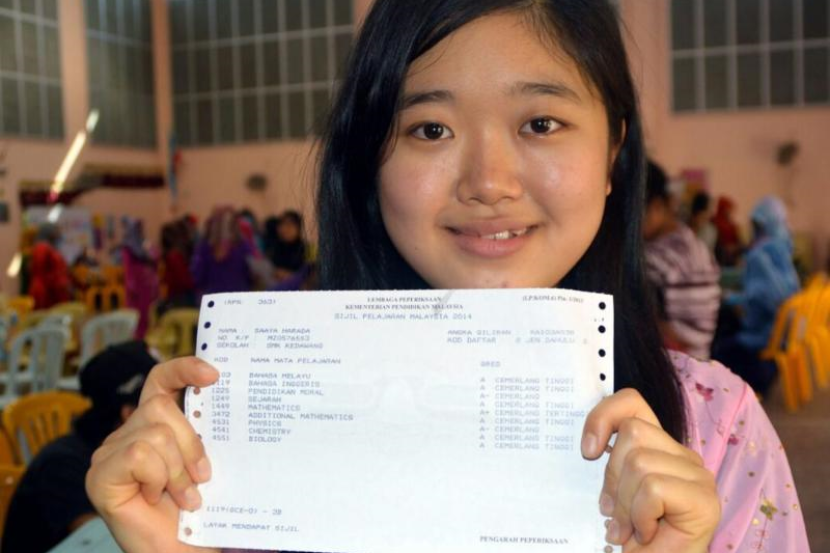 LEMBAGA PEPERIKSAAN
KEMENTERIAN PENDIDIKAN MALAYSIA
SIJIL PELAJARAN MALAYSIA 2014
NAMA : SAAYA HARADA
ANGKA GILIRAN :
NO. K/P :
SEKOLAH : SMK KEDAWANG
KOD NAMA MATA PELAJARAN GRED
1103 BAHASA MELAYU A CEMERLANG TINGGI
1119 BAHASA INGGERIS A- CEMERLANG
1225 PENDIDIKAN MORAL A CEMERLANG TINGGI
1249 SEJARAH A- CEMERLANG
1449 MATHEMATICS A CEMERLANG TINGGI
3472 ADDITIONAL MATHEMATICS A+ CEMERLANG TERTINGGI
4531 PHYSICS A CEMERLANG TINGGI
4541 CHEMISTRY A- CEMERLANG
4551 BIOLOGY A CEMERLANG TINGGI
1119(GCE-O) - 2B
LAYAK MENDAPAT SIJIL
PENGARAH PEPERIKSAAN